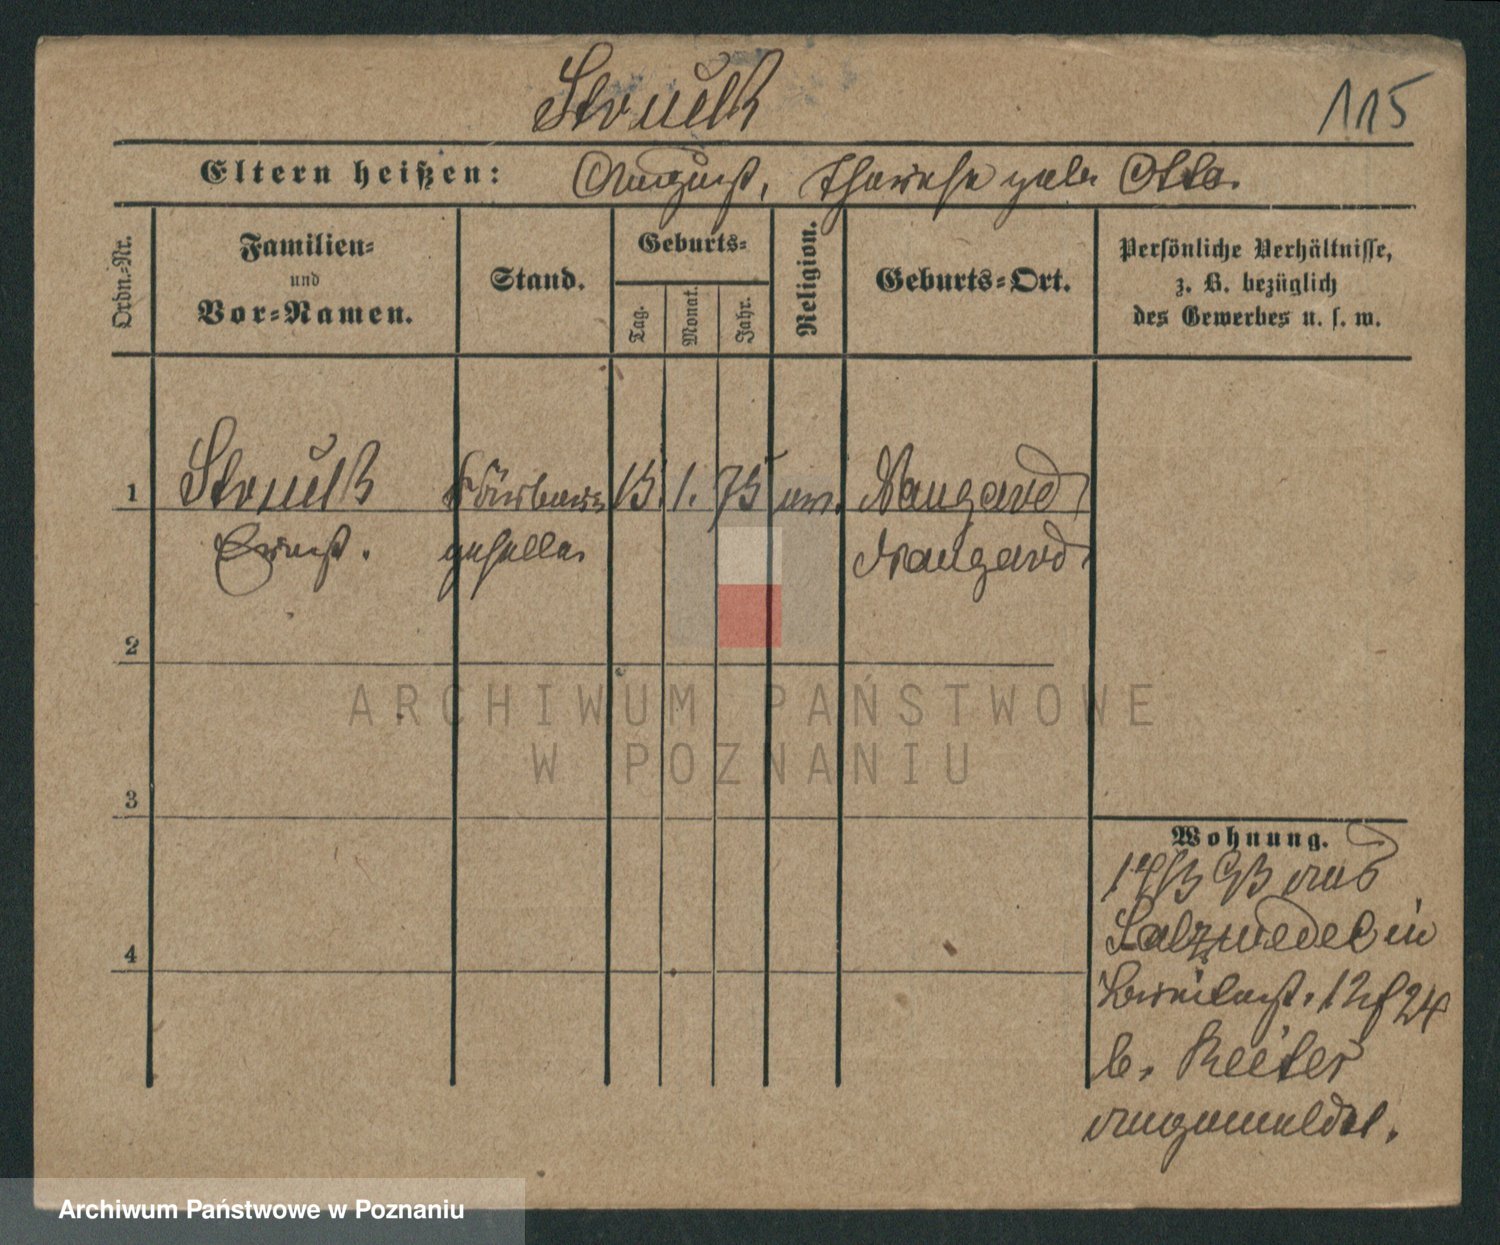 Struck
115
Eltern heißen: August, Therese geb. Otto.
Ordn.-Nr.
Familien-
und
Vor-Namen.
Stand.
Geburts-
Tag.
Monat.
Jahr.
Religion.
Geburts-Ort.
Persönliche Verhältnisse,
z. B. bezüglich
des Gewerbes u. s. w.
1 Struck 15. 1. 75 ev. Naugard
Ernst. geselle. Naugard.
2
ARCHIWUM PAŃSTWOWE
W POZNANIU
3
4
Wohnung.
93 aus
Salzwedel in
Breitestr.
b. Reiter
angemeldet.
Archiwum Państwowe w Poznaniu